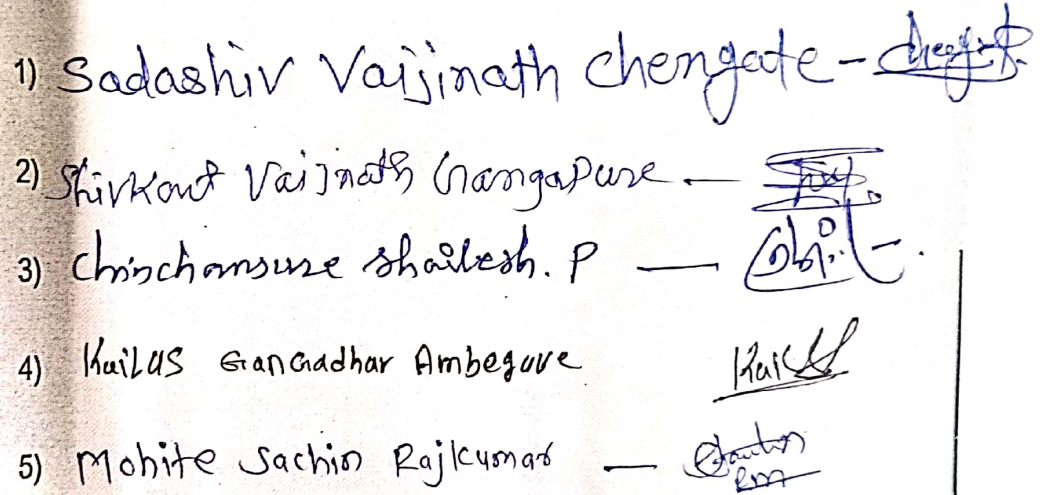 1) Sadashiv Vaijinath Chengate -
2) Shivkant Vaijnath Gangapure -
3) Chinchansure Shailesh. P —
4) Kailas Gangadhar Ambegave
5) Mohite Sachin Rajkumar —